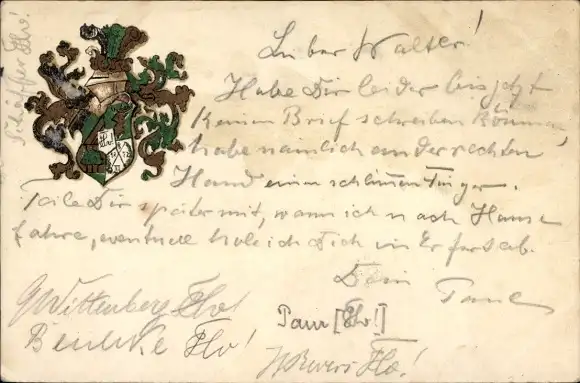 Lieber Walter!
Habe Dir leider bis jetzt
keinen Brief schreiben können,
habe nämlich an der rechten
Hand einen schlimmen Finger.
Teile Dir später mit, wann ich nach Hause
fahre, eventuell hole ich Dich in Erfurt ab.
Dein Paul
G Wittenberg
Paur